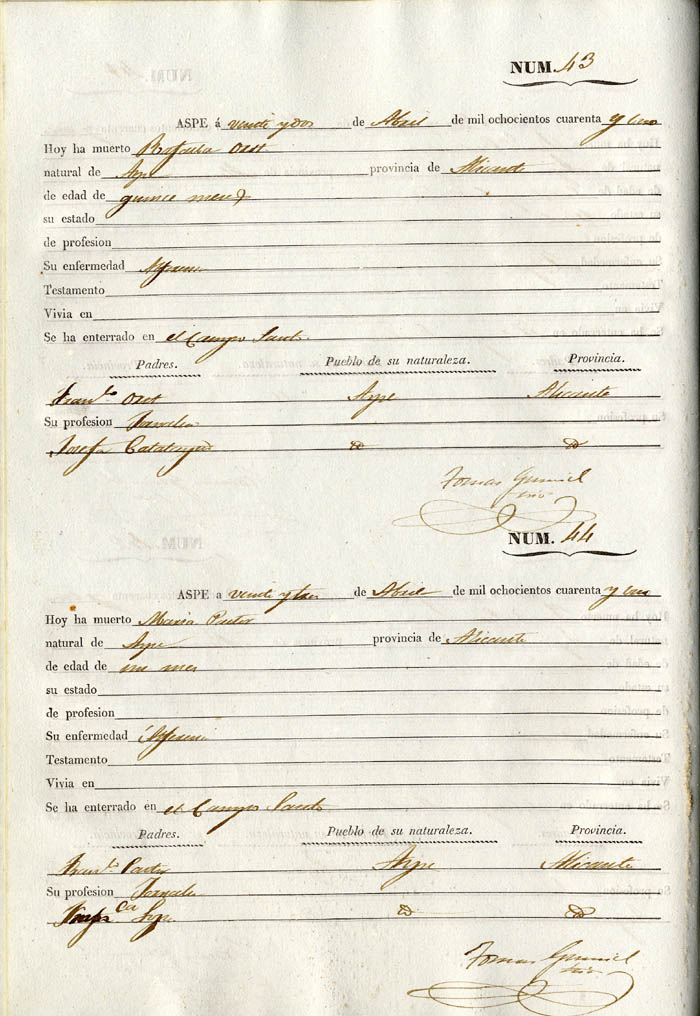 NUM. 43
ASPE á veinte y dos de Abril de mil ochocientos cuarenta y uno
Hoy ha muerto Rafaela
natural de Aspe provincia de Alicante
de edad de quince meses
su estado
de profesion
Su enfermedad
Testamento
Vivia en
Se ha enterrado en el Campo Santo
Padres. Pueblo de su naturaleza. Provincia.
Fran.co Aspe Alicante
Su profesion Jornalero
Josefa
Tomas
NUM. 44
ASPE a veinte y tres de Abril de mil ochocientos cuarenta y uno
Hoy ha muerto Maria Pastor
natural de Aspe provincia de Alicante
de edad de un mes
su estado
de profesion
Su enfermedad
Testamento
Vivia en
Se ha enterrado en el Campo Santo
Padres. Pueblo de su naturaleza. Provincia.
Fran.co Pastor Aspe Alicante
Su profesion Jornalero
Tomas